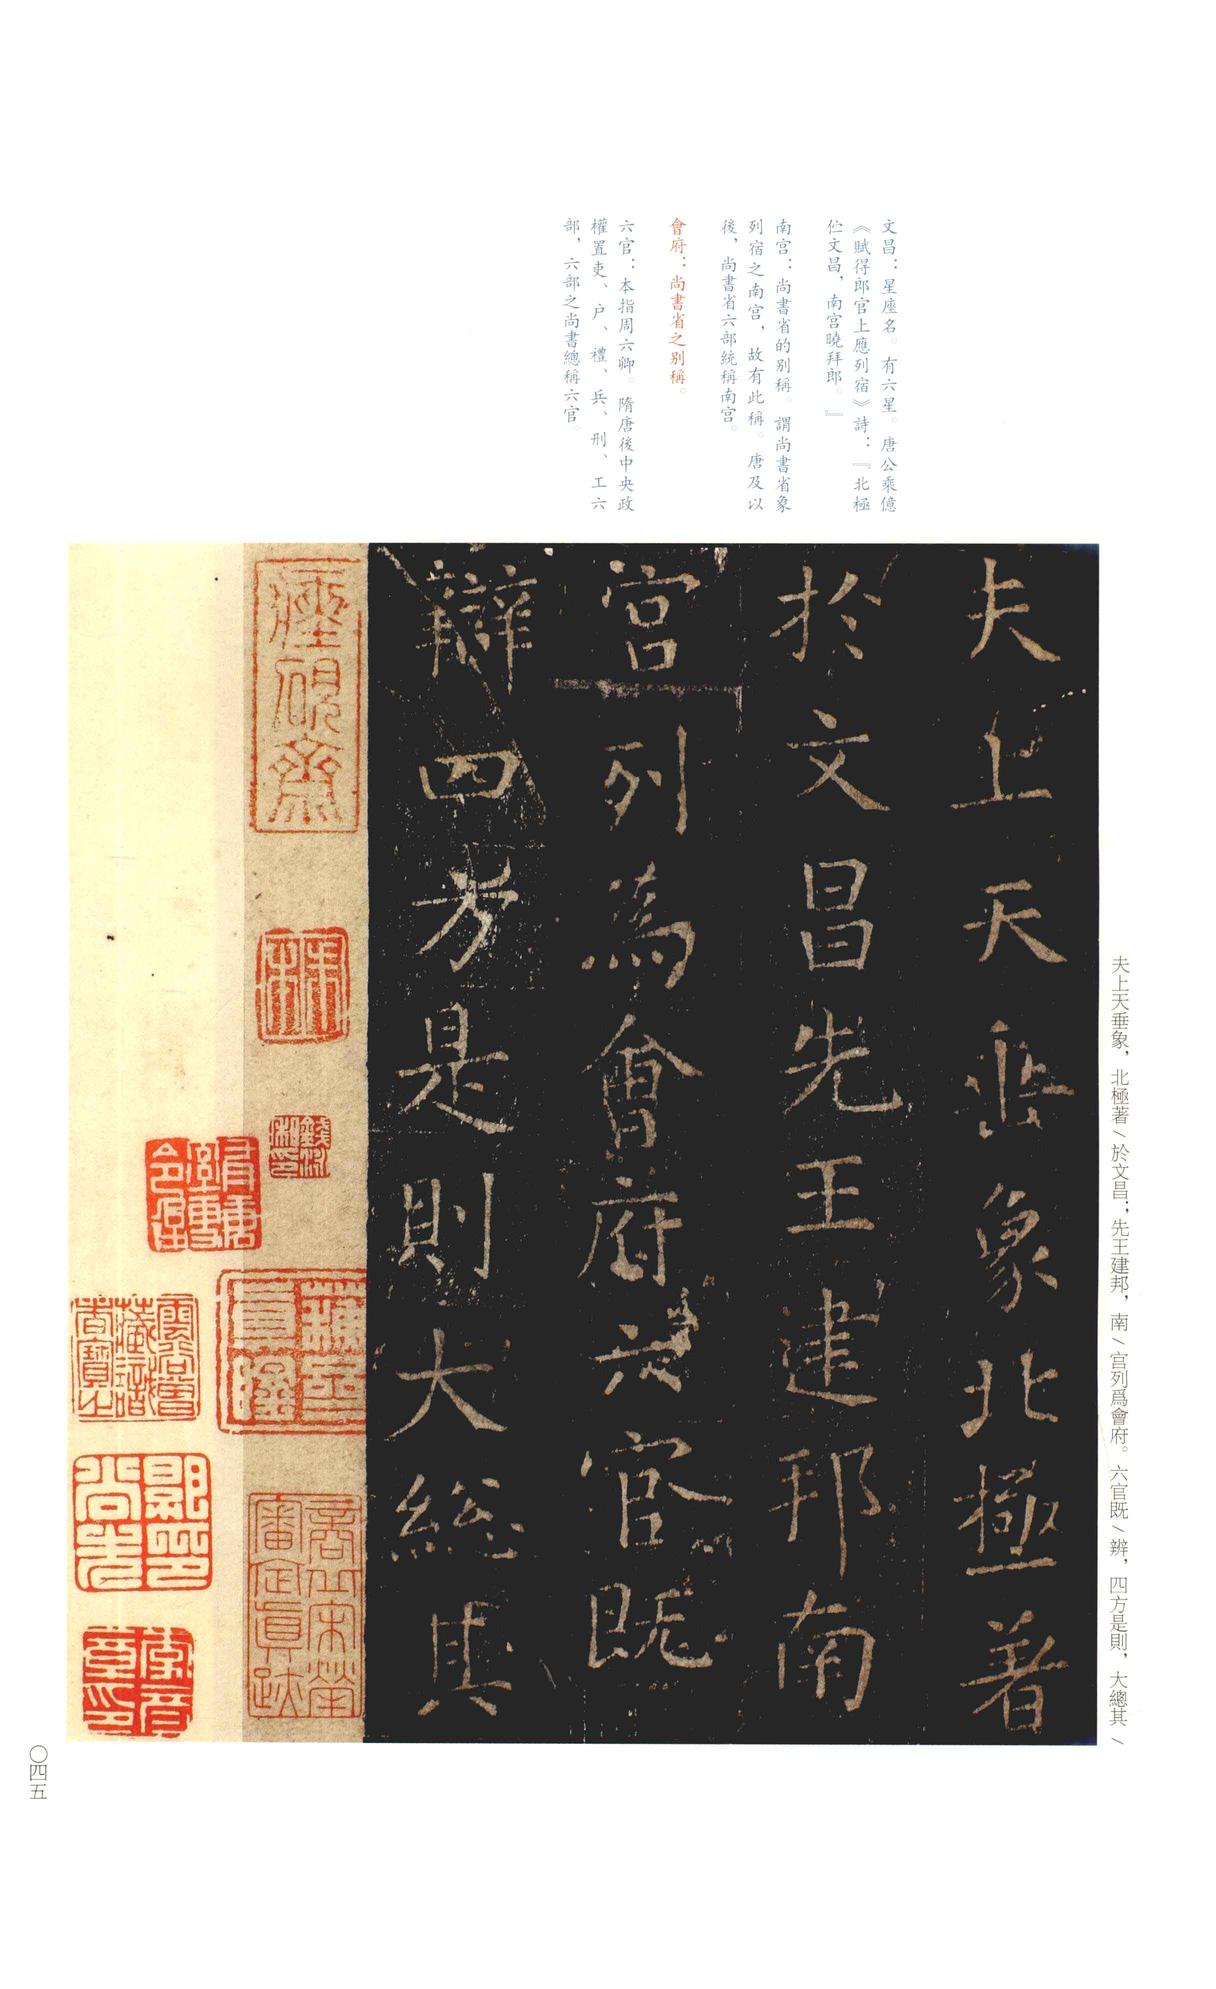 文昌：星座名。有六星。唐公乘億
《賦得郎官上應列宿》詩：『北極
伫文昌，南宫曉拜郎。』
南宫：尚書省的别稱。謂尚書省象
列宿之南宫，故有此稱。唐及以
後，尚書省六部統稱南宫。
會府：尚書省之别稱。
六官：本指周六卿。隋唐後中央政
權置吏、户、禮、兵、刑、工六
部，六部之尚書總稱六官。
夫上天垂象北極著
於文昌先王建邦南
宫列為會府六官既
辯四方是則大総其
夫上天垂象，北極著/於文昌；先王建邦，南/宫列爲會府。六官既/辨，四方是則，大總其/
〇四五